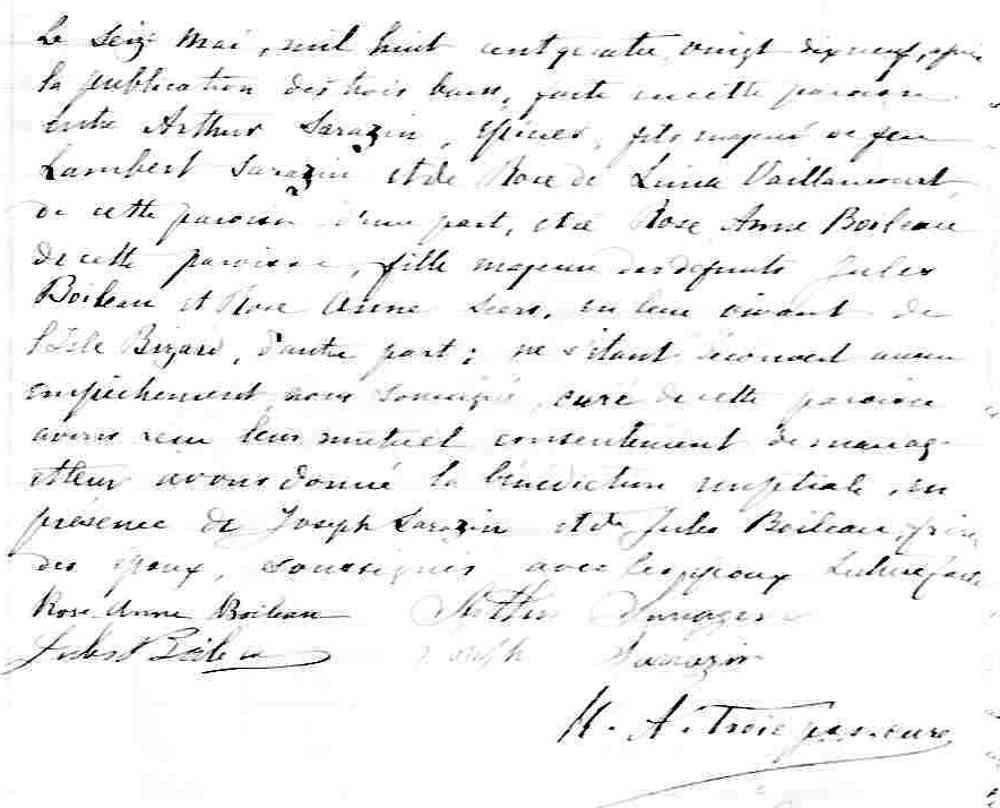 Le seize Mai, mil huit cent quatre vingt dix neuf, après
la publication des trois bans, faite en cette paroisse
entre Arthur Sarazin, épicier, fils majeur de feu
Lambert Sarazin et de Rose de Lima Vaillancourt,
de cette paroisse d'une part, et de Rose Anne Boileau
de cette paroisse, fille majeure des defunts Jules
Boileau et Rose Anne, en leur vivant de
l'Isle Bizard, d'autre part; ne s'étant découvert aucun
empêchement, nous soussigné, curé de cette paroisse
avons reçu leur mutuel consentement de mariage
et leur avons donné la bénédiction nuptiale en
présence de Joseph Sarazin et de Jules Boileau, frères
des époux, soussignés avec les époux Lecture faite
Rose Anne Boileau Arthur Sarrazin
Jules Boileau Joseph Sarrazin
A. Troie curé